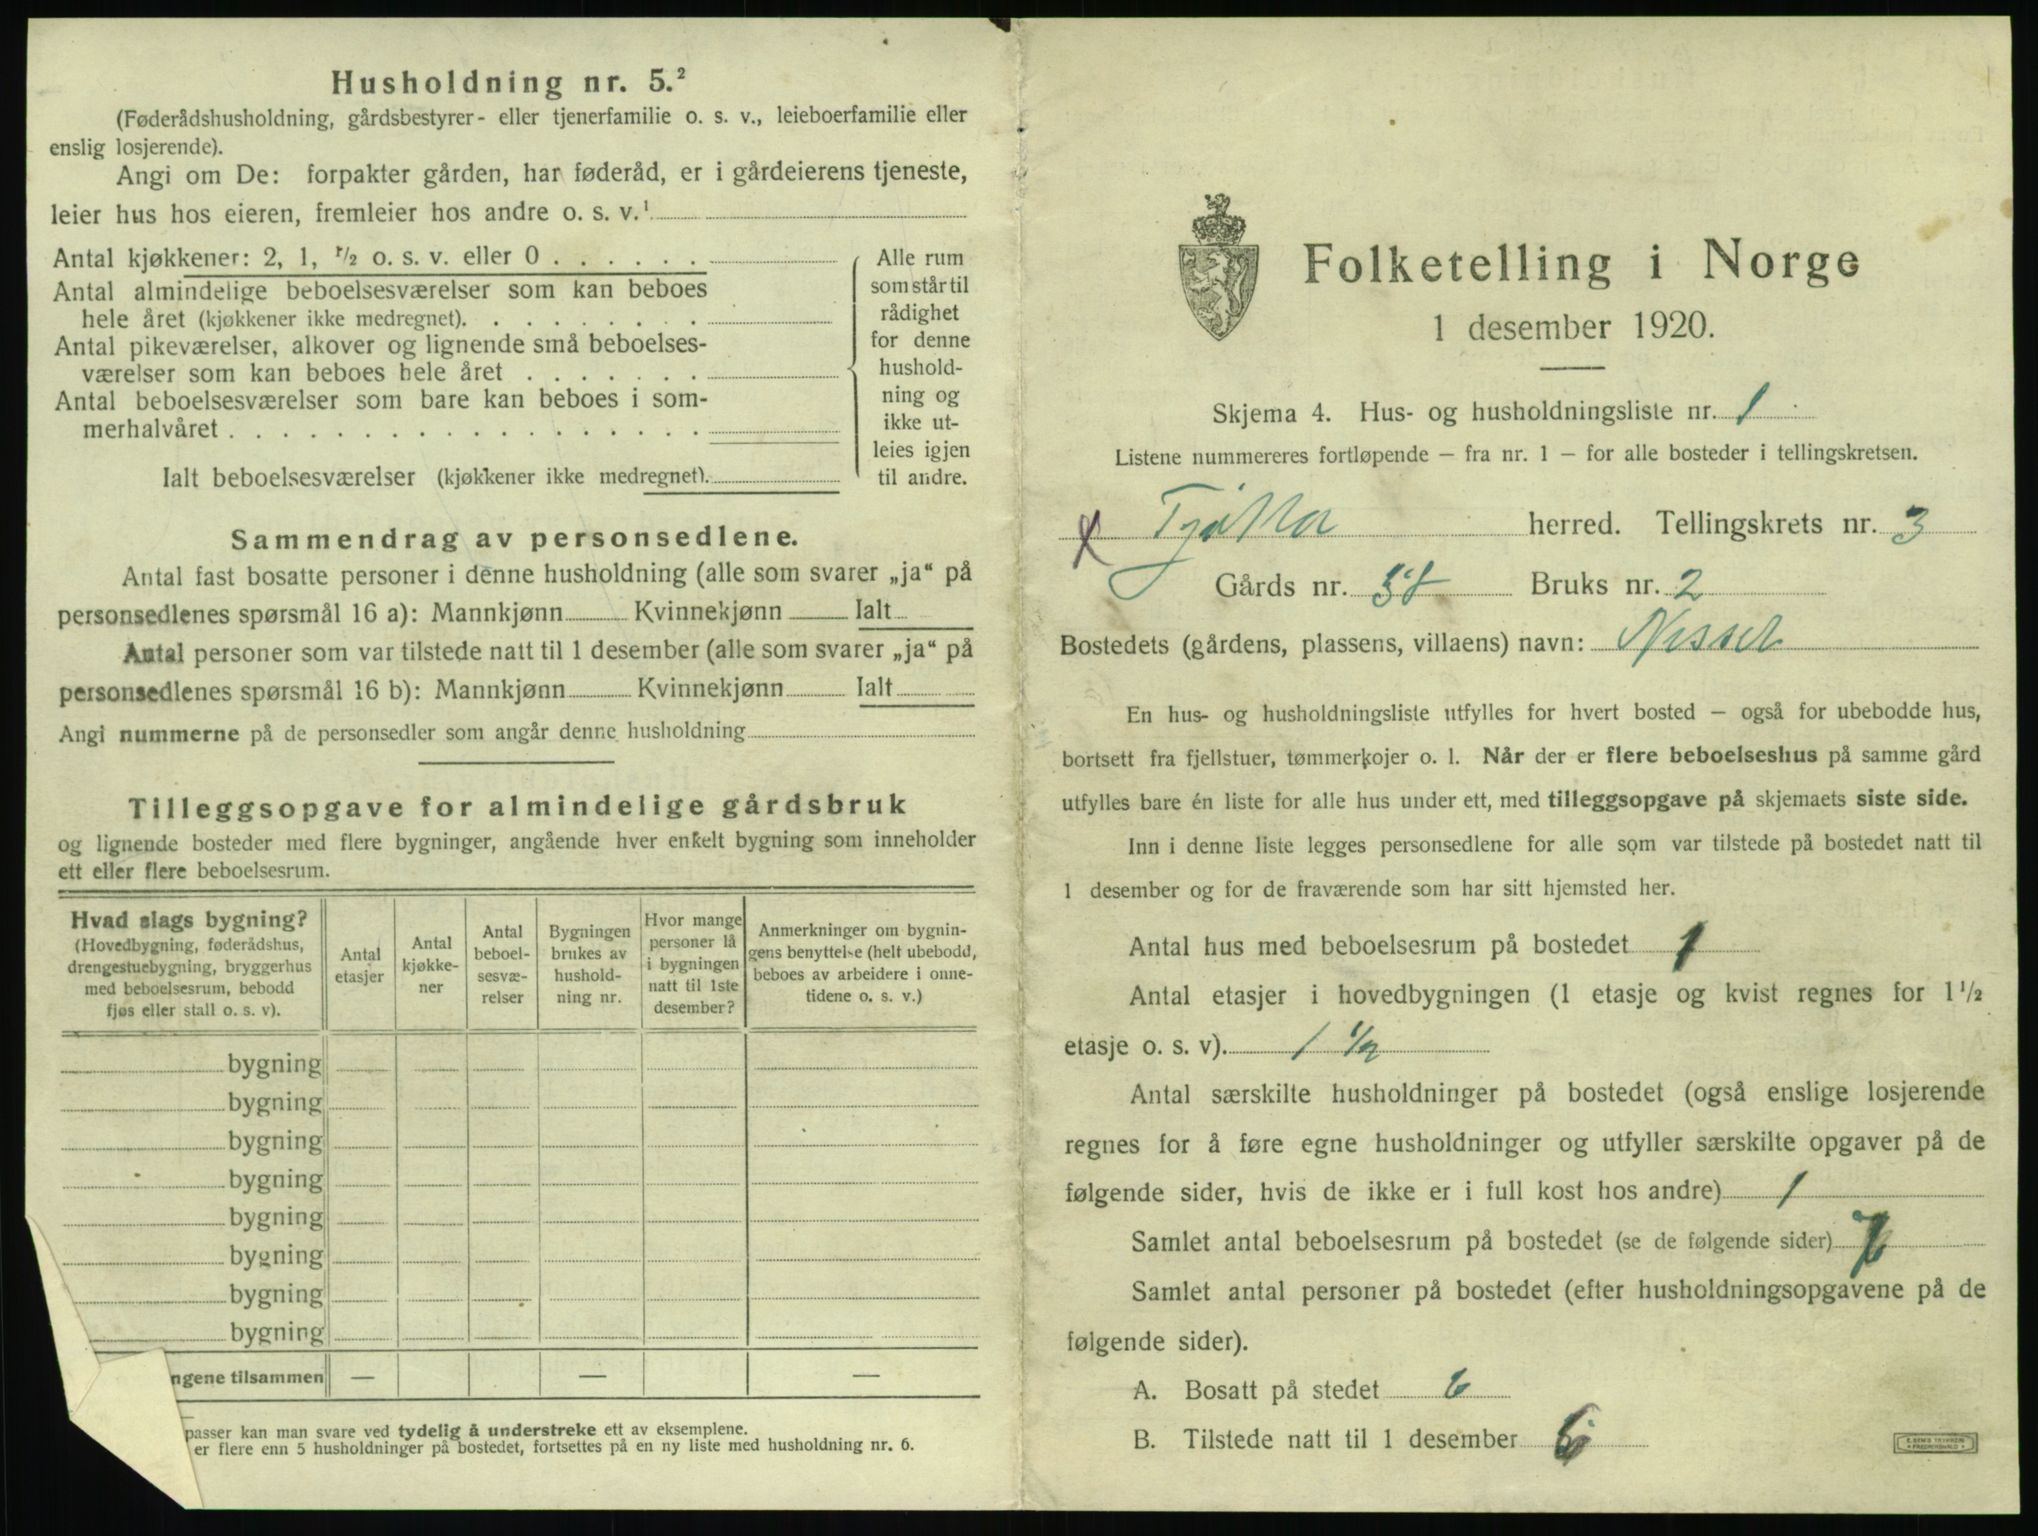 Husholdning nr. 5.²
(Føderådshusholdning, gårdsbestyrer- eller tjenerfamilie o. s. v., leieboerfamilie eller
enslig losjerende).
Angi om De: forpakter gården, har føderåd, er i gårdeierens tjeneste,
leier hus hos eieren, fremleier hos andre o. s. v.¹
Antal kjøkkener: 2, 1, ½ o. s. v. eller 0
Antal almindelige beboelsesværelser som kan beboes
hele året (kjøkkener ikke medregnet).
Antal pikeværelser, alkover og lignende små beboelses-
værelser som kan beboes hele året
Antal beboelsesværelser som bare kan beboes i som-
merhalvåret
Ialt beboelsesværelser (kjøkkener ikke medregnet).
Alle rum
som står til
rådighet
for denne
hushold-
ning og
ikke ut-
leies igjen
til andre.
Sammendrag av personsedlene.
Antal fast bosatte personer i denne husholdning (alle som svarer „ja“ på
personsedlenes spørsmål 16 a): Mannkjønn Kvinnekjønn Ialt
Antal personer som var tilstede natt til 1 desember (alle som svarer „ja“ på
personsedlenes spørsmål 16 b): Mannkjønn Kvinnekjønn Ialt
Angi nummerne på de personsedler som angår denne husholdning
Tilleggsopgave for almindelige gårdsbruk
og lignende bosteder med flere bygninger, angående hver enkelt bygning som inneholder
ett eller flere beboelsesrum.
Hvad slags bygning?
(Hovedbygning, føderådshus,
drengestuebygning, bryggerhus
med beboelsesrum, bebodd
fjøs eller stall o. s. v).
Antal
etasjer
Antal
kjøkke-
ner
Antal
beboel-
sesvæ-
relser
Bygningen
brukes av
hushold-
ning nr.
Hvor mange
personer lå
i bygningen
natt til 1ste
desember?
Anmerkninger om bygnin-
gens benyttelse (helt ubebodd,
beboes av arbeidere i onne-
tidene o. s. v.)
bygning
bygning
bygning
bygning
bygning
bygning
bygning
bygning
ngene tilsammen — — —
passer kan man svare ved tydelig å understreke ett av eksemplene.
er flere enn 5 husholdninger på bostedet, fortsettes på en ny liste med husholdning nr. 6.
Folketelling i Norge
1 desember 1920.
Skjema 4. Hus- og husholdningsliste nr. 1
Listene nummereres fortløpende — fra nr. 1 — for alle bosteder i tellingskretsen.
x Tjøtta herred. Tellingskrets nr. 3
Gårds nr. Bruks nr. 2
Bostedets (gårdens, plassens, villaens) navn:
En hus- og husholdningsliste utfylles for hvert bosted — også for ubebodde hus,
bortsett fra fjellstuer, tømmerkojer o. l. Når der er flere beboelseshus på samme gård
utfylles bare én liste for alle hus under ett, med tilleggsopgave på skjemaets siste side.
Inn i denne liste legges personsedlene for alle som var tilstede på bostedet natt til
1 desember og for de fraværende som har sitt hjemsted her.
Antal hus med beboelsesrum på bostedet 1
Antal etasjer i hovedbygningen (1 etasje og kvist regnes for 1½
etasje o. s. v). 1 ½
Antal særskilte husholdninger på bostedet (også enslige losjerende
regnes for å føre egne husholdninger og utfyller særskilte opgaver på de
følgende sider, hvis de ikke er i full kost hos andre) 1
Samlet antal beboelsesrum på bostedet (se de følgende sider)
Samlet antal personer på bostedet (efter husholdningsopgavene på de
følgende sider).
A. Bosatt på stedet 6
B. Tilstede natt til 1 desember 6